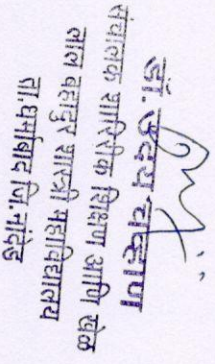 डॉ. उदय चव्हाण
संचालक शारिरीक शिक्षण आणि खेळ
लाल बहादुर शास्त्री महाविद्यालय
ता.धर्माबाद जि.नांदेड